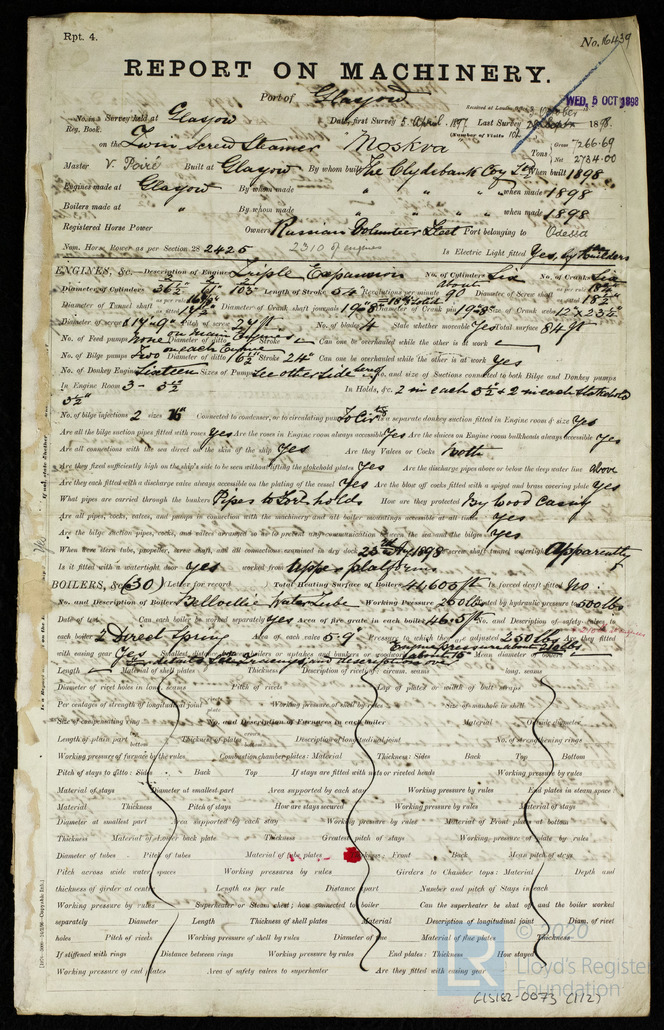 Rpt. 4.
No. 16439
REPORT ON MACHINERY.
Port of Glasgow
Received at London Office
WED, 5 OCT 1898
No. in Survey held at Glasgow Date, first Survey 5 April 1897 Last Survey 1898.
Reg. Book. (Number of Visits
on the Twin Screw Steamer "Moskva" Tons Gross 7266.69 Net 2734.00
Master V. Built at Glasgow By whom built The Clydebank Coy When built 1898
Engines made at Glasgow By whom made " " " when made 1898
Boilers made at " By whom made " " " when made 1898
Registered Horse Power Owners Russian Volunteer Fleet Port belonging to Odessa
Nom. Horse Power as per Section 28 2425 2310 if engines Is Electric Light fitted Yes, by the builders
ENGINES, &c.—Description of Engines Triple Expansion No. of Cylinders Six No. of Cranks Six
Diameter of Cylinders Length of Stroke 54" Revolutions per minute about 90 Diameter of Screw shaft as per rule as fitted 18½"
Diameter of Tunnel shaft as per rule as fitted Diameter of Crank shaft journals Diameter of Crank pin Size of Crank webs 12" x 23½"
Diameter of screw 17' 9" Pitch of screw No. of blades 4 State whether moveable Yes Total surface 84 ft
No. of Feed pumps none on main Engines Diameter of ditto Stroke Can one be overhauled while the other is at work
No. of Bilge pumps Two on each Engine Diameter of ditto Stroke 24" Can one be overhauled while the other is at work Yes
No. of Donkey Engines Sixteen Sizes of Pumps See other side No. and size of Suctions connected to both Bilge and Donkey pumps
In Engine Room 3 - 5½" In Holds, &c. 2 in each 5½" + 2 in each Stokehold
5½"
No. of bilge injections 2 sizes Connected to condenser, or to circulating pump To Circ Is a separate donkey suction fitted in Engine room & size Yes
Are all the bilge suction pipes fitted with roses Yes Are the roses in Engine room always accessible Yes Are the sluices on Engine room bulkheads always accessible Yes
Are all connections with the sea direct on the skin of the ship Yes Are they Valves or Cocks both
Are they fixed sufficiently high on the ship's side to be seen without lifting the stokehold plates Yes Are the discharge pipes above or below the deep water line above
Are they each fitted with a discharge valve always accessible on the plating of the vessel Yes Are the blow off cocks fitted with a spigot and brass covering plate Yes
What pipes are carried through the bunkers Pipes to Fore holds How are they protected By Wood Casing
Are all pipes, cocks, valves, and pumps in connection with the machinery and all boiler mountings accessible at all times Yes
Are the bilge suction pipes, cocks, and valves arranged so as to prevent any communication between the sea and the bilges Yes
When were stern tube, propeller, screw shaft, and all connections examined in dry dock 1898 Is the screw shaft tunnel watertight Apparently
Is it fitted with a watertight door yes worked from upper platform
BOILERS, &c.— (30) (Letter for record ) Total Heating Surface of Boilers 44605 ft Is forced draft fitted No:
No. and Description of Boilers Belleville Water Tube Working Pressure 250 lbs Tested by hydraulic pressure to 500 lbs
Date of test Can each boiler be worked separately Yes Area of fire grate in each boiler 46.5 ft No. and Description of safety valves to
each boiler 2 Direct Spring Area of each valve 5.9" Pressure to which they are adjusted 250 lbs Are they fitted
with easing gear Yes Smallest distance between boilers or uptakes and bunkers or woodwork Mean diameter of boilers
for details see tracings and description over
Length Material of shell plates Thickness Description of riveting: circum. seams long. seams
Diameter of rivet holes in long. seams Pitch of rivets Lap of plates or width of butt straps
Per centages of strength of longitudinal joint Working pressure of shell by rules Size of manhole in shell
Size of compensating ring No. and Description of Furnaces in each boiler Material Outside diameter
Length of plain part top bottom Thickness of plates Description of longitudinal joint No. of strengthening rings
Working pressure of furnace by the rules Combustion chamber plates: Material Thickness: Sides Back Top Bottom
Pitch of stays to ditto: Sides Back Top If stays are fitted with nuts or riveted heads Working pressure by rules
Material of stays Diameter at smallest part Area supported by each stay Working pressure by rules End plates in steam space
Material Thickness Pitch of stays How are stays secured Working pressure by rules Material of stays
Diameter at smallest part Area supported by each stay Working pressure by rules Material of Front plates at bottom
Thickness Material of Lower back plate Thickness Greatest pitch of stays Working pressure of plate by rules
Diameter of tubes Pitch of tubes Material of tube plates Thickness: Front Back Mean pitch of stays
Pitch across wide water spaces Working pressures by rules Girders to Chamber tops: Material Depth and
thickness of girder at centre Length as per rule Distance apart Number and pitch of Stays in each
Working pressure by rules Superheater or Steam chest; how connected to boiler Can the superheater be shut off and the boiler worked
separately Diameter Length Thickness of shell plates Material Description of longitudinal joint Diam. of rivet
holes Pitch of rivets Working pressure of shell by rules Diameter of flue Material of flue plates Thickness
If stiffened with rings Distance between rings Working pressure by rules End plates: Thickness How stayed
Working pressure of end plates Area of safety valves to superheater Are they fitted with easing gear
© 2020
Lloyd's Register
Foundation
GLS182-0073 (1/2)